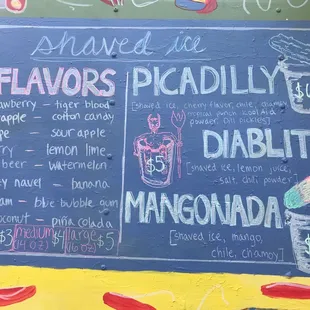 shaved ice
FLAVORS
tiger blood
cotton candy
sour apple
lemon lime
beer - watermelon
navel - banana
blue bubble gum
piña colada
$3 medium $4 large $5
(14 oz) (16 oz)
PICADILLY
[shaved ice, cherry flavor, chile, chamoy,
powder, dill pickles]
$5
DIABLIT
[shaved ice, lemon juice,
salt, chili powder]
MANGONADA
[shaved ice, mango,
chile, chamoy]